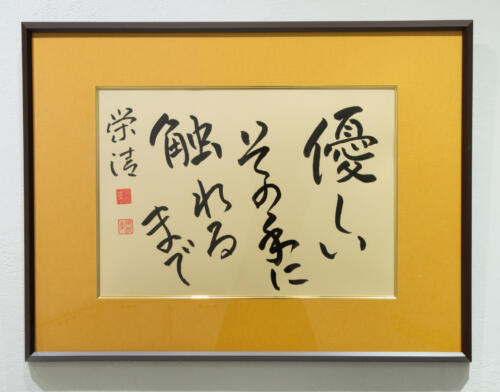 優しい
その手に
触れる
まで
栄清